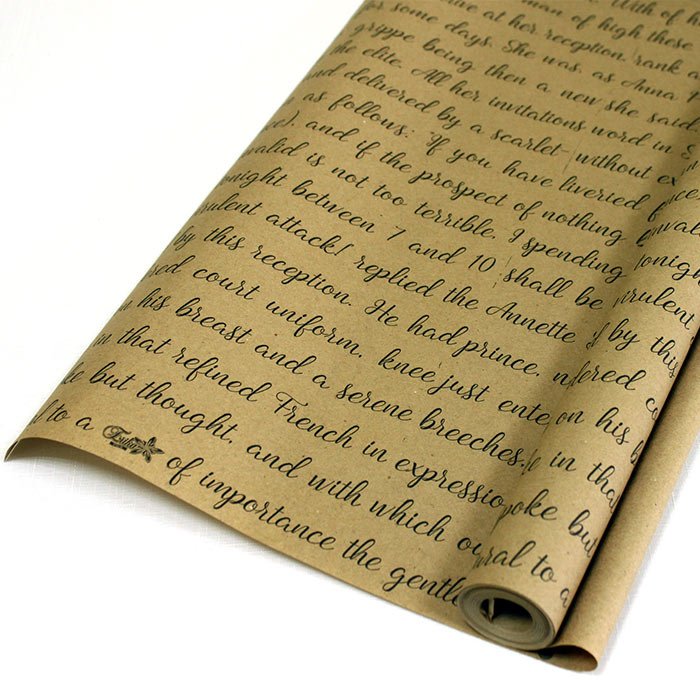 With of h
man of high these
at her reception. rank a
for some days. She was, as Anna
grippe being then a new she said
the elite. All her invitations word in
and delivered by a scarlet- without ex
as follows: If you have liveried
and if the prospect of nothing
nvalid is not too terrible, I spending
onight between 7 and 10 shall be tonight
rulent attack! replied the Annette virulent
by this reception. He had prince, by this
red court uniform, knee just ente fered co
on his breast and a serene breeches. on his b
in that refined French in expressio in that
ke but thought, and with which ou poke but
l to a of importance the gentle ural to a